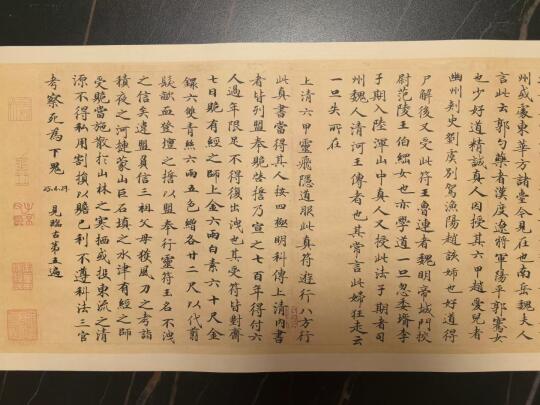 州或處東華方諸臺今見在也南岳魏夫人
言此云郭勺藥者漢度遼將軍陽平郭騫女
也少好道精誠真人因授其六甲趙愛兒者
幽州刾史劉虞別駕漁陽趙該姊也好道得
尸解後又受此符王魯連者魏明帝城門校
尉范陵王伯綱女也亦學道一旦忽委壻李
子期入陸渾山中真人又授此法子期者司
州魏人清河王傳者也其常言此婦狂走云
一旦失所在
上清六甲靈飛隱道服此真符遊行八方行
此真書當得其人按四極明科傳上清內書
者皆列盟奉貺啟誓乃宣之七百年得付六
人過年限足不得復出洩也其受符皆對齋
七日貺有經之師上金六兩白素六十尺金
鐶六雙青絲六兩五色繒各廿二尺以代翦
髮歃血登壇之誓以盟奉行靈符玉名不洩
之信矣違盟負信三祖父母獲風刀之考詣
積夜之河揵蒙山巨石填之水津有經之師
受貺當施散於山林之寒栖或投東流之清
源不得私用割損以贍己利不遵科法三官
考察死為下鬼
25.6.29 見臨古第五遍